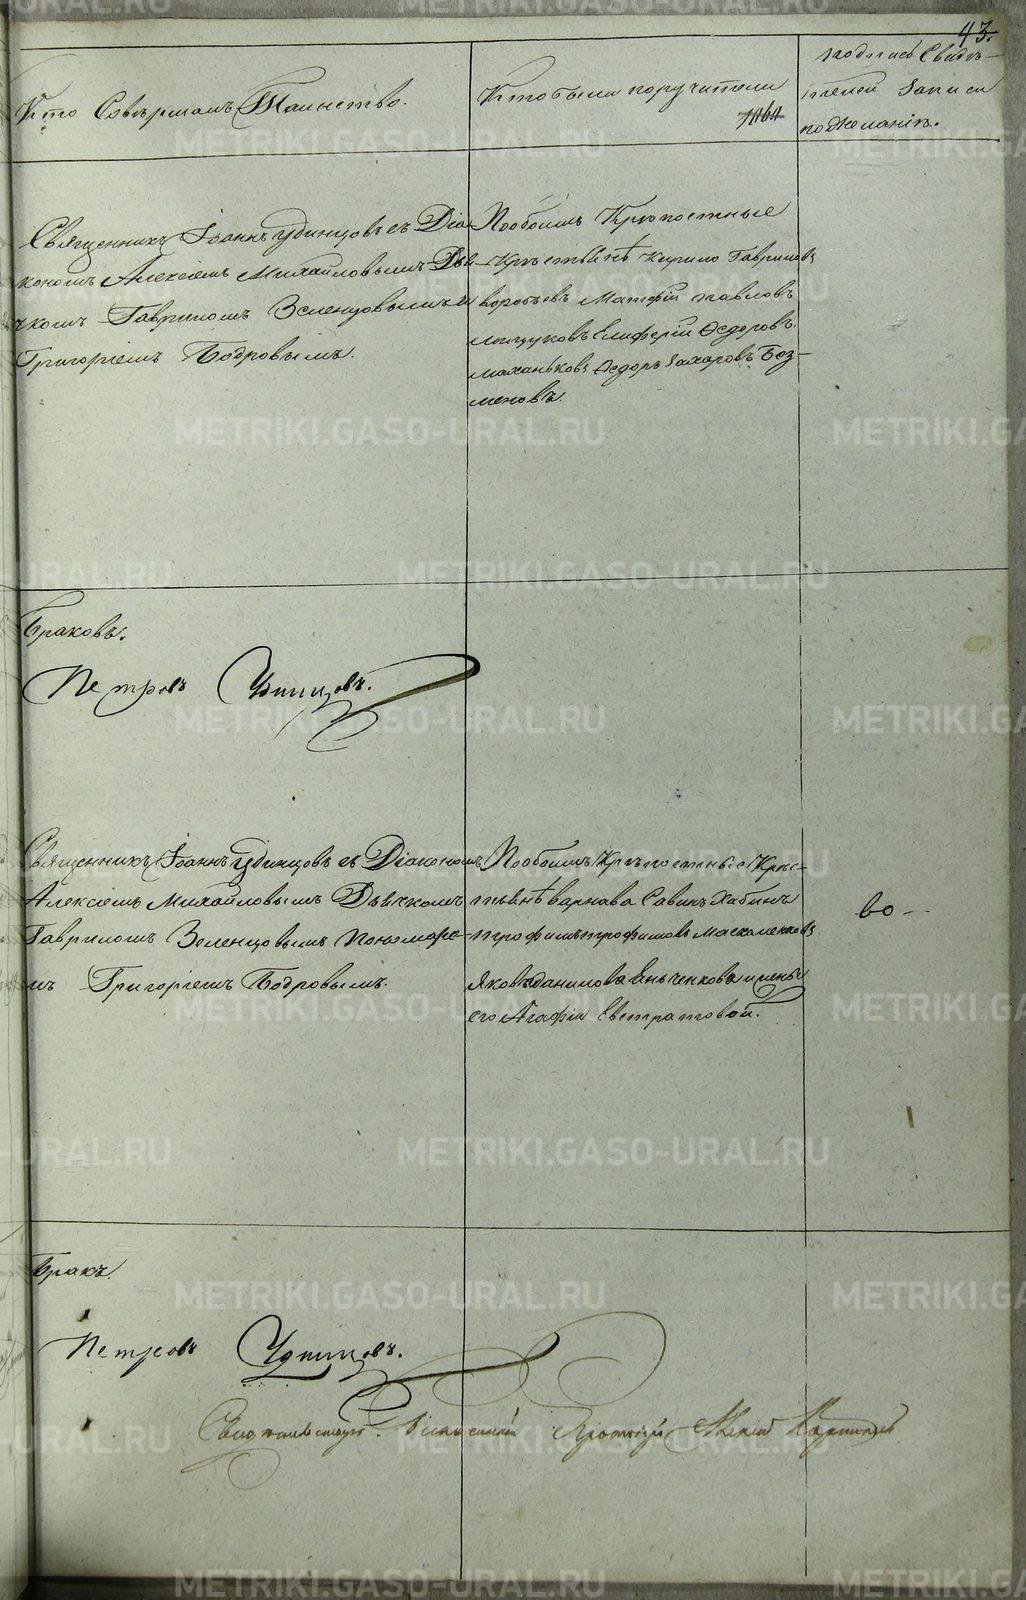 43.
Кто Совѣршалъ Таинство.
Кто были поручители
подпись Свидѣ-
телей Записи
по Желанію.
Священникъ Іоаннъ Удинцовъ съ Діа-
кономъ Алексіемъ Михайловымъ Дья-
чкомъ Гавриломъ Зеленцовымъ и
Григоріемъ Бодровымъ.
По обоимъ Крѣпостные
Крѣстьянѣ Кирило Гавриловъ
воробьевъ Матфій павловъ
Елиферій Ѳедоровъ
маханьковъ Ѳедоръ Захаровъ Боз-
меновъ.
Браковъ.
Петровъ Удинцовъ.
Священникъ Іоаннъ Удинцовъ съ Діакономъ
Алексіемъ Михайловымъ Дьячкомъ
Гавриломъ Зеленцовымъ пономаре-
мъ Григоріемъ Бодровымъ.
По обоимъ Крѣпостные Крѣс-
тьянѣ варнава Савинъ Хабинъ
трофимъ трофимовъ Маскаленковъ
Яковъ даниловъ
его Агафіи Евстратовой.
во -
Бракъ.
Петровъ Удинцовъ.
METRIKI.GASO-URAL.RU